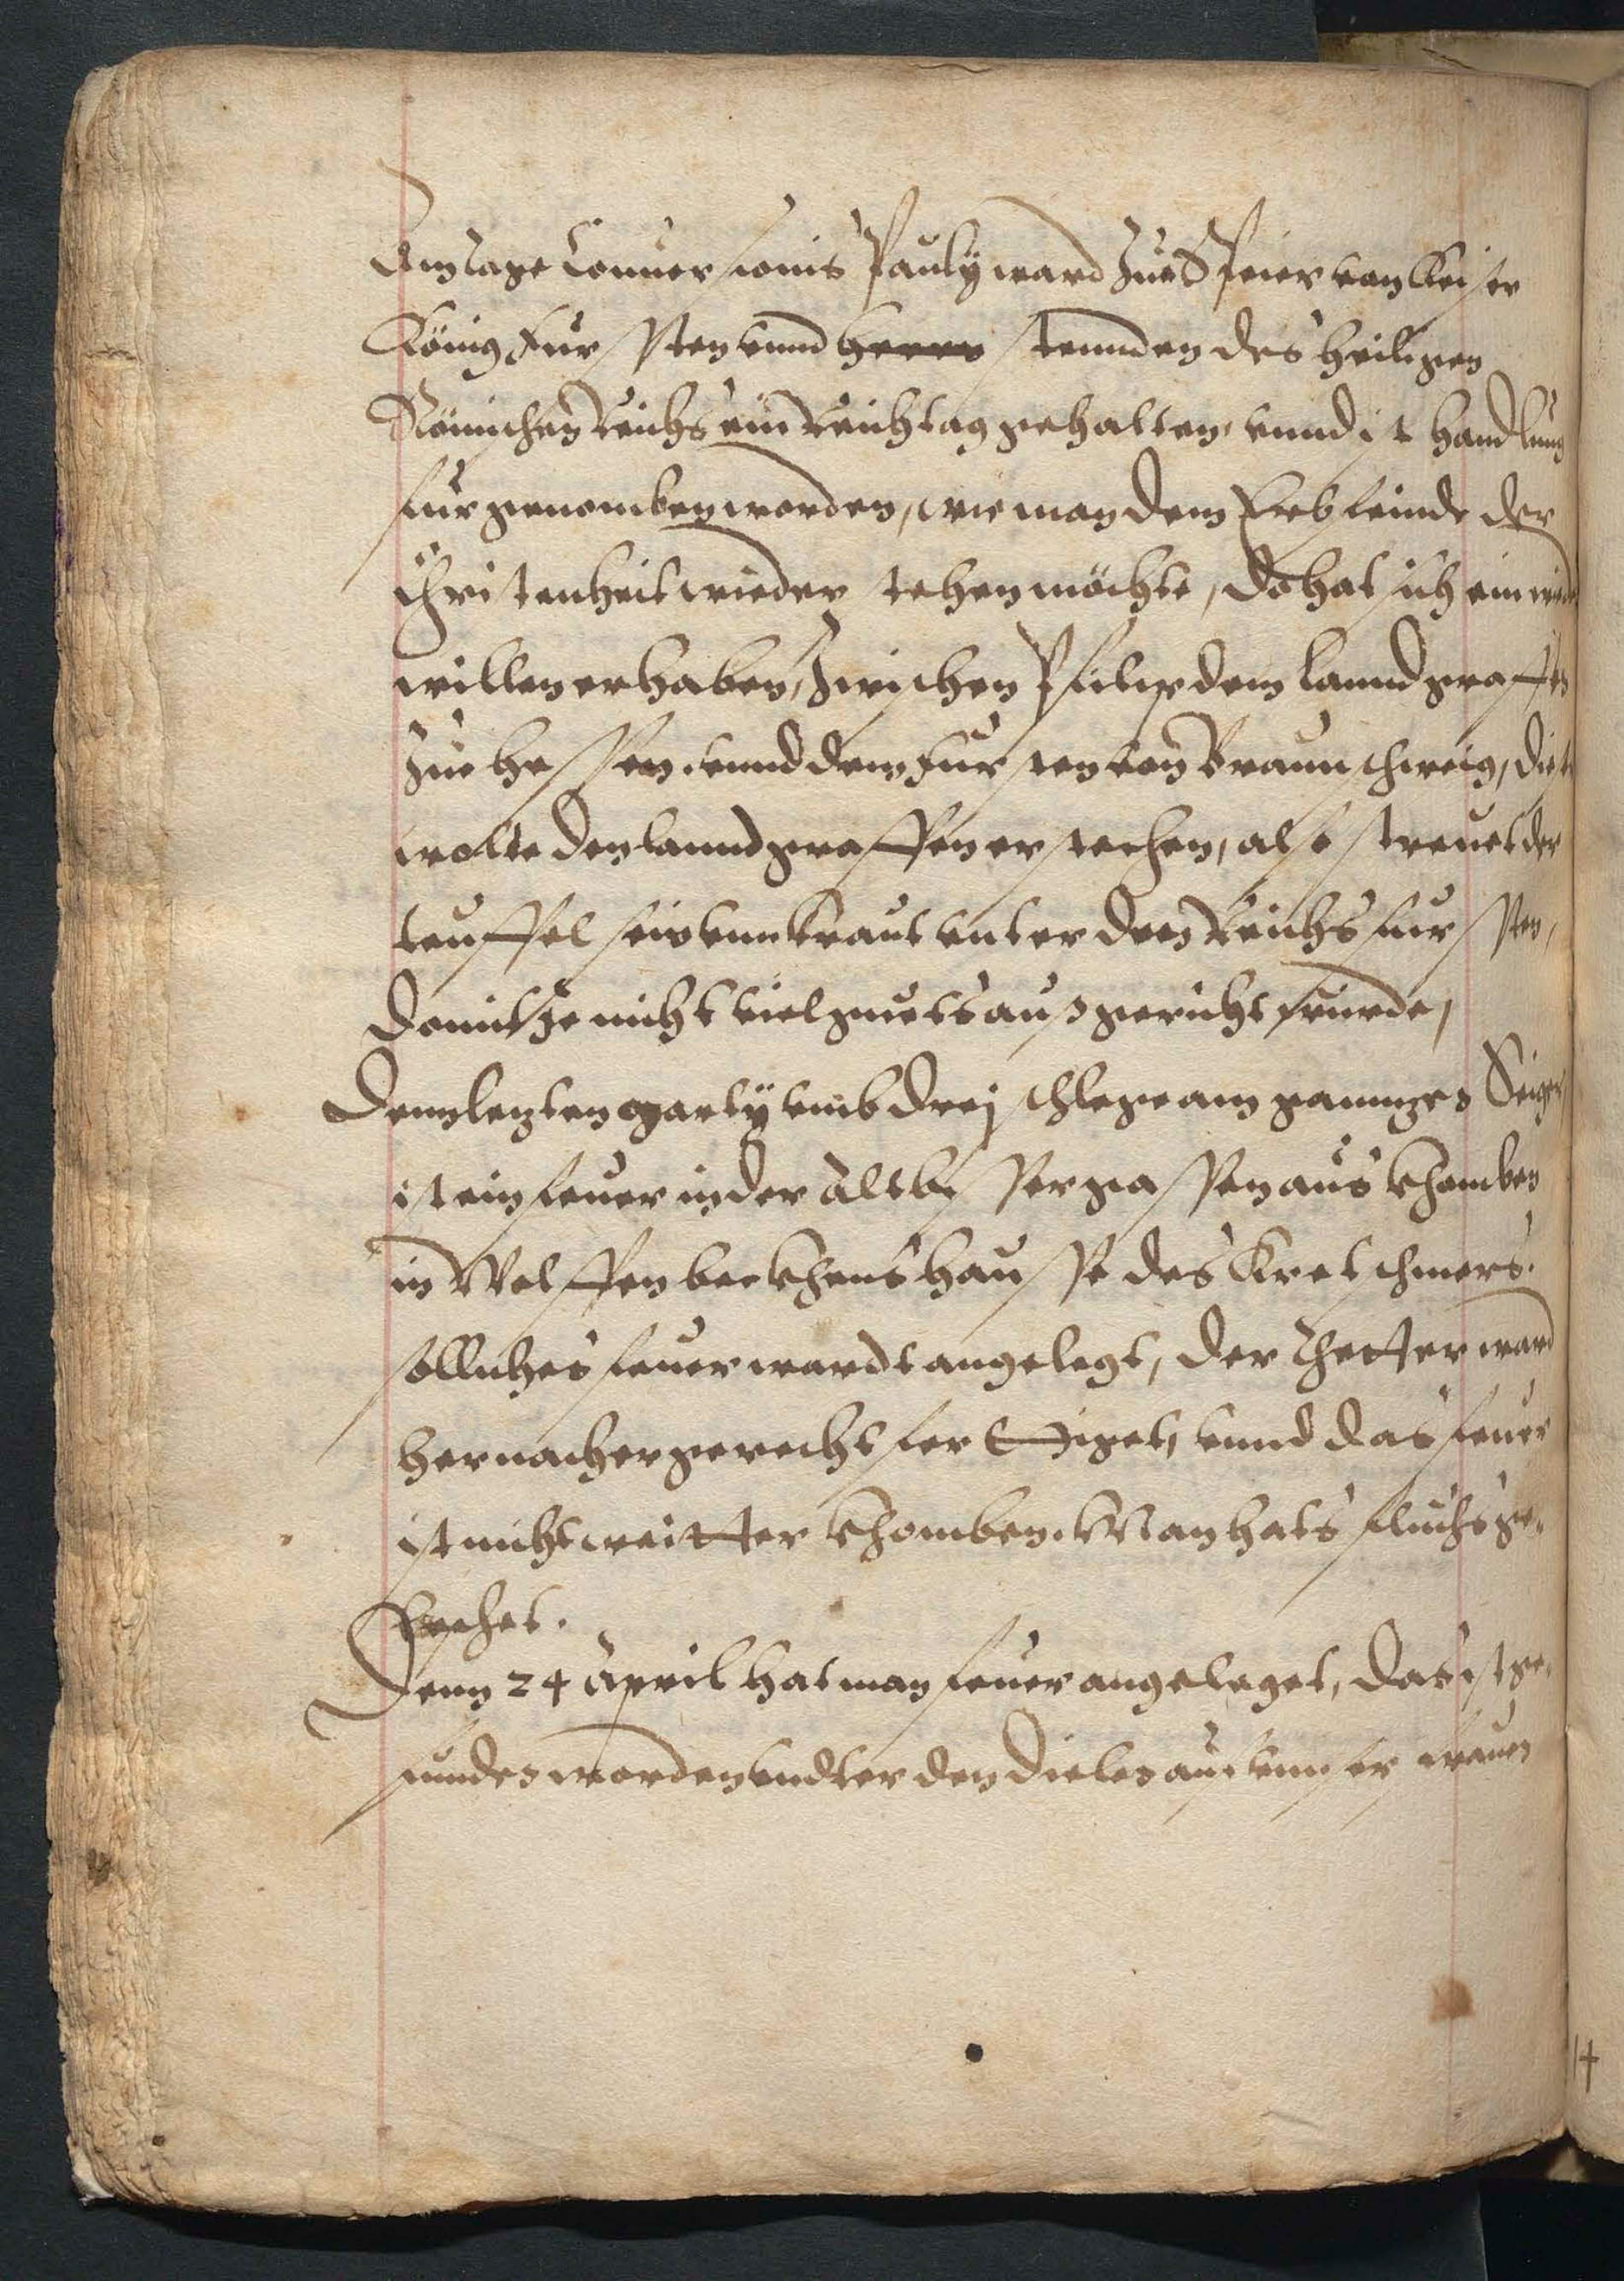 Am Tage Conuersionis Pauly ward zue Speier von Keiser
König Fursten vnnd herrn stennden des heiligen
Römischen Reichs ein Reichstag gehalten, vnnd ist handlung
furgenomben worden, wie man dem Erbfeinde der
Christenheit wieder stehen möchte, Do hat sich ein wieder
willen erhaben, zwischen Philip dem lanndgraffen
zue Hessen, vnnd dem Fursten von Braunschweig, dieser
wolte den lanndgraffen erstechen, also streuet der
teuffel sein vnnkraut vnter den Reichs fursten,
Domit Je nicht viel guets ausgericht wurde,
Denn lezten Marty vmb Dreij schlege am ganngen Seiger
ist ein feuer in der Altbusser gassen aus khomben
in Wolffen beckhens hausse des Kretschmers.
sölliches feuer wardt angelegt, der theter ward
hernacher gerechtfertiget, vnnd das feuer
ist nicht weitter khomben. Man hats fluchs ge-
leschet.
Denn 24 April hat man feuer angeleget, das ist ge-
funden worden vndter den dielen auf vnnser frauen